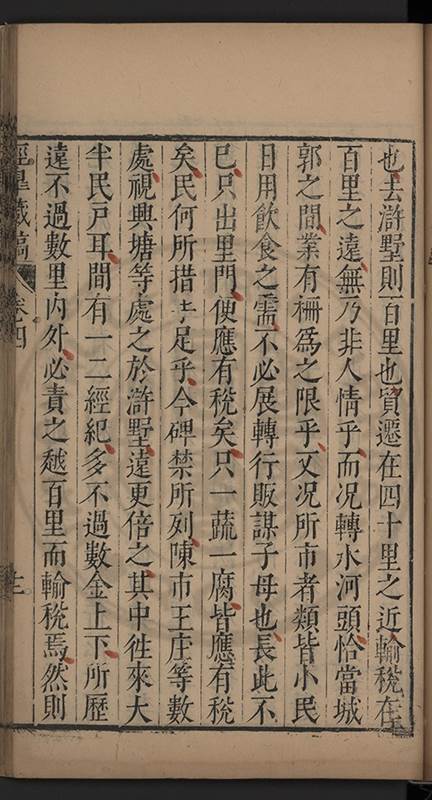 也去滸墅則百里也貿遷在四十里之近輸稅在
百里之遠無乃非人情乎而况轉水河頭恰當城
郭之間業有柵爲之限乎又况所市者類皆小民
日用飲食之需不必展轉行販謀子母也長此不
已只出里門便應有稅矣只一蔬一腐皆應有稅
矣民何所措手足乎今碑禁所列陳市王庄等數
處視興塘等處之於滸墅遠更倍之其中徃來大
半民戶耳間有一二經紀多不過數金上下所歷
遠不過數里內外必責之越百里而輸稅焉然則
藏稿
卷四